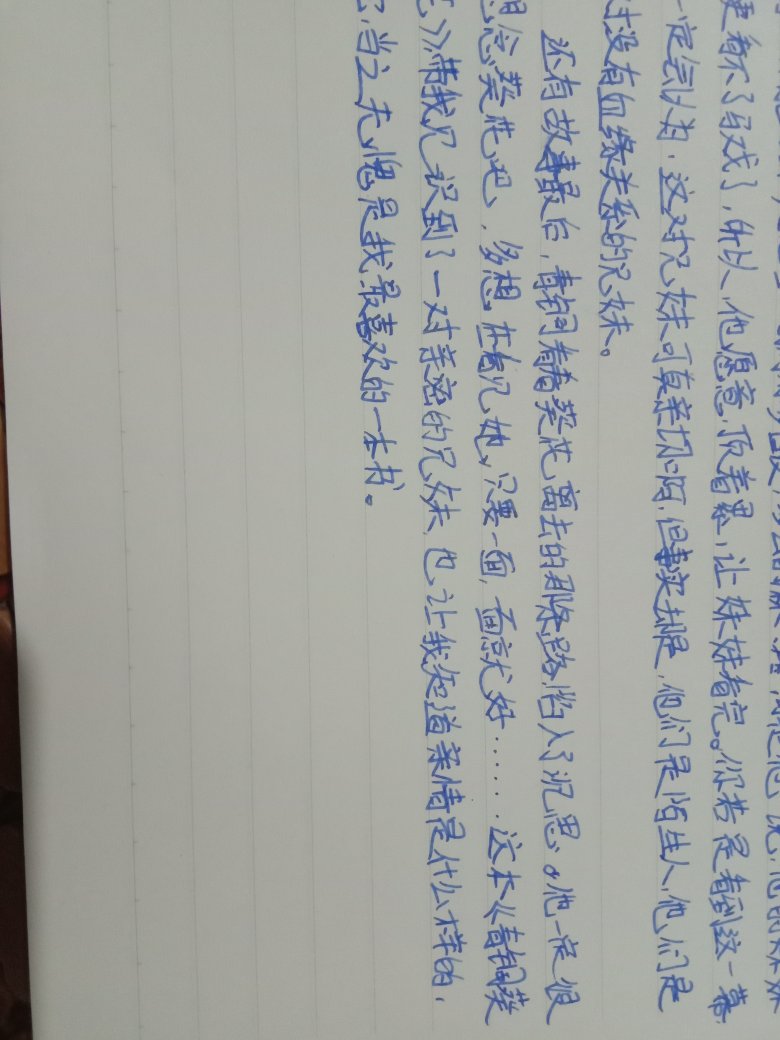 更看不了马戏了,所以,他愿意顶着累,让妹妹看完。你若是看到这一幕
一定会以为,这对兄妹可真亲切啊,但事实却是,他们是陌生人,他们是
对没有血缘关系的兄妹。
还有故事最后,青铜看着葵花离去的那条路,陷入了沉思。他一定很
想念葵花吧,多想再看见她,只要一面,一面就好……这本《青铜葵
花》,带我见识到了一对亲密的兄妹,也让我知道亲情是什么样的,
它,当之无愧是我最喜欢的一本书。